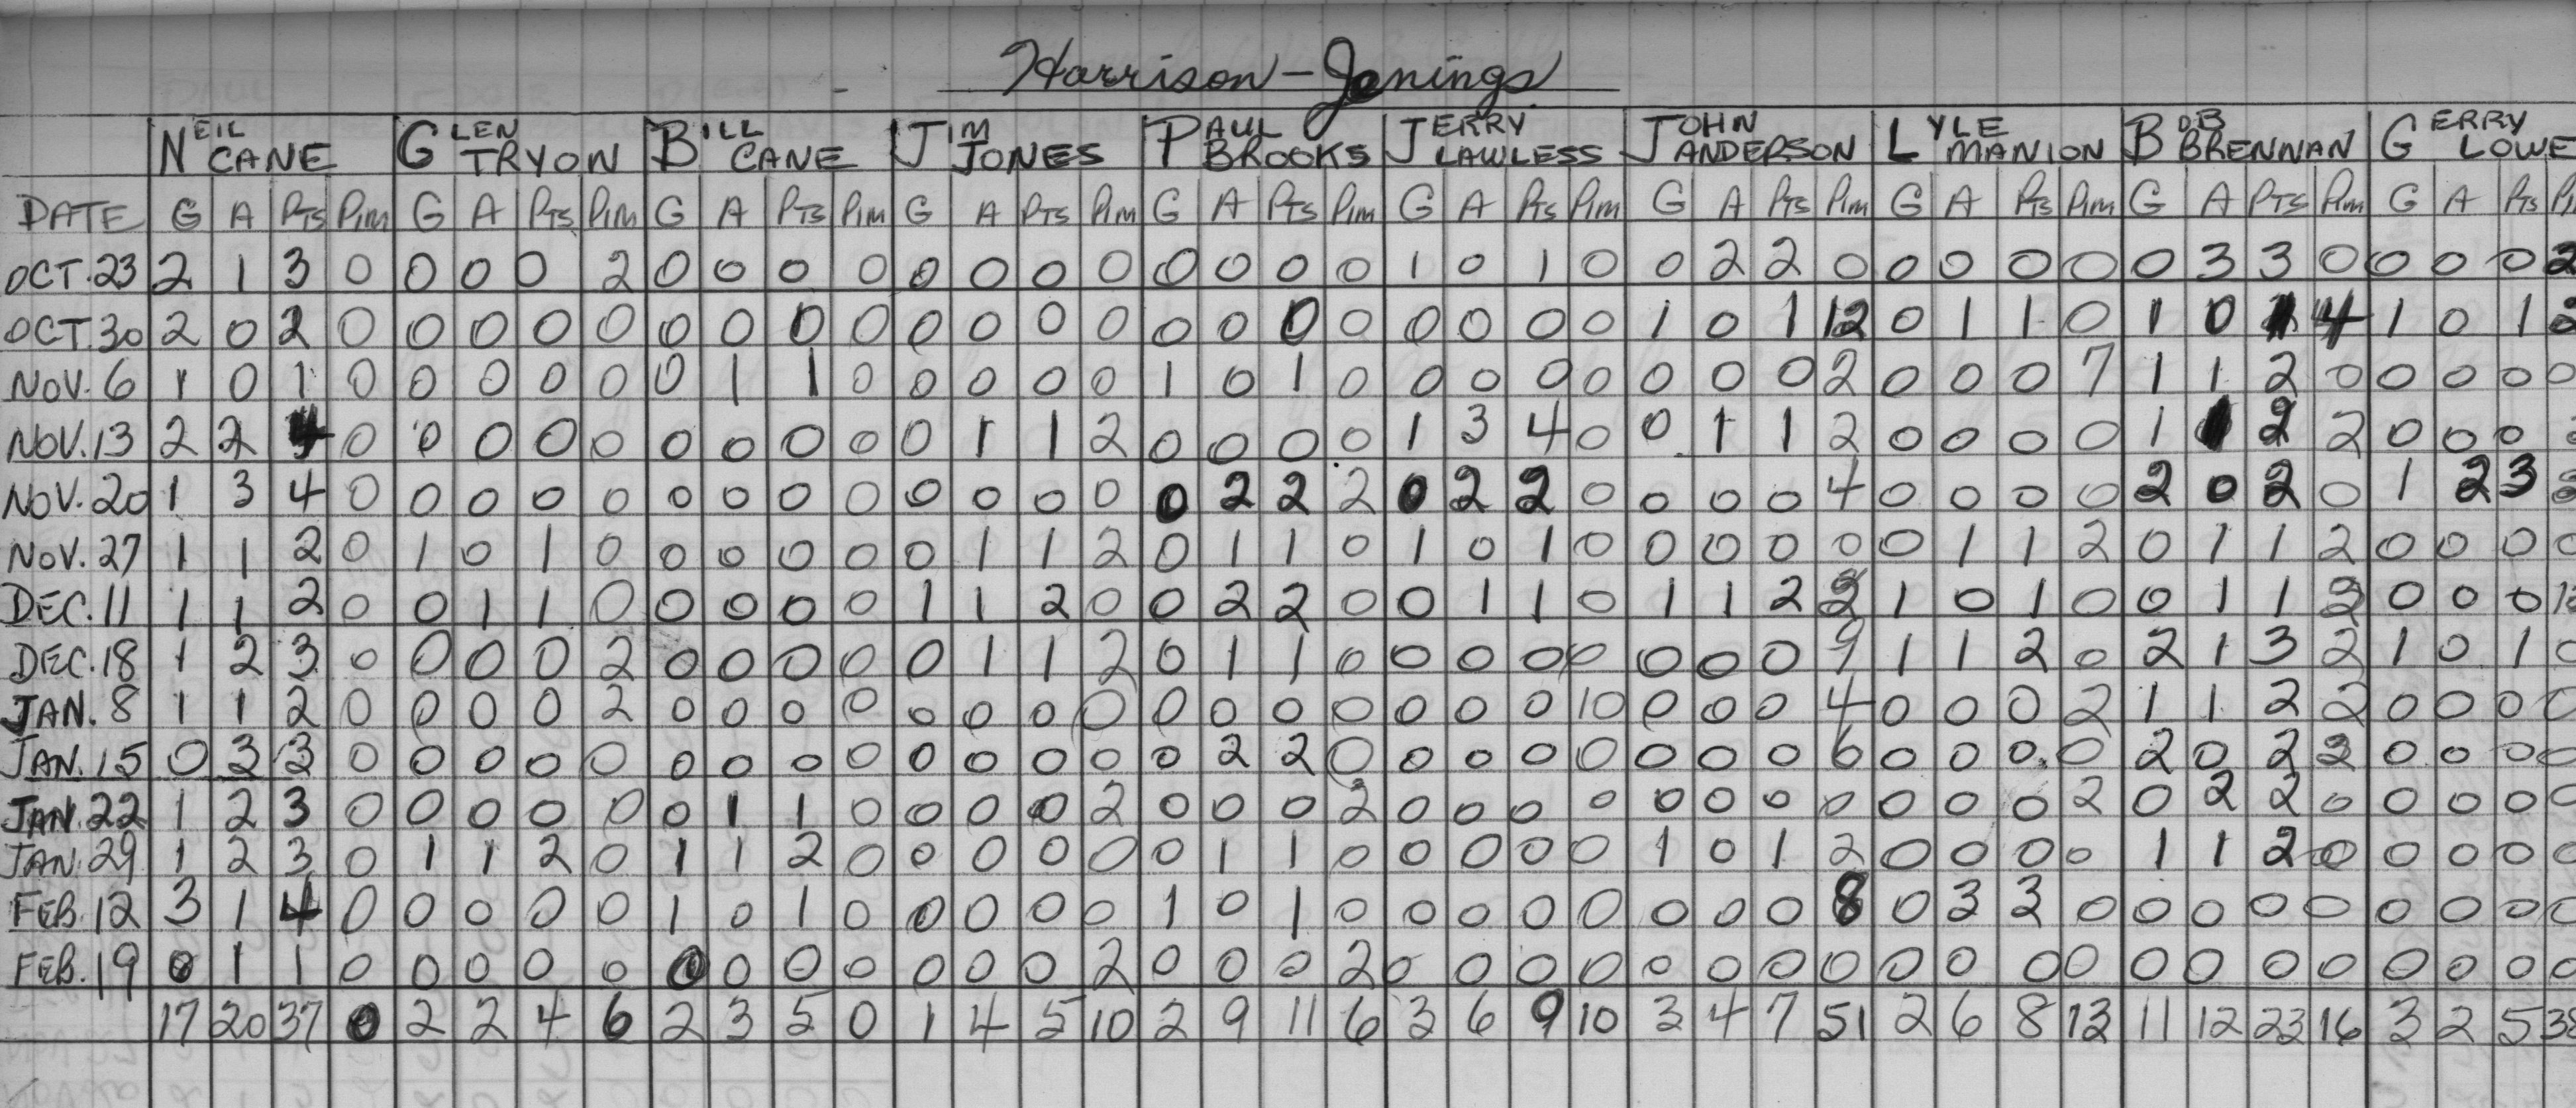 Harrison-Jenings
NEIL CANE GLEN TRYON BILL CANE JIM JONES PAUL BROOKS JERRY LAWLESS JOHN ANDERSON LYLE MANION BOB BRENNAN GERRY LOWE
DATE G A PTS PIM G A PTS PIM G A PTS PIM G A PTS PIM G A PTS PIM G A PTS PIM G A PTS PIM G A PTS PIM G A PTS PIM G A PTS
OCT.23 2 1 3 0 0 0 0 2 0 0 0 0 0 0 0 0 0 0 0 0 1 0 1 0 0 2 2 0 0 0 0 0 0 3 3 0 0 0 0 2
OCT.30 2 0 2 0 0 0 0 0 0 0 0 0 0 0 0 0 0 0 0 0 0 0 0 0 1 0 1 12 0 1 1 0 1 0 1 4 1 0 1 2
NOV. 6 1 0 1 0 0 0 0 0 0 1 1 0 0 0 0 0 1 0 1 0 0 0 0 0 0 0 0 2 0 0 0 7 1 1 2 0 0 0 0 0
NOV.13 2 2 4 0 0 0 0 0 0 0 0 0 0 1 1 2 0 0 0 0 1 3 4 0 0 1 1 2 0 0 0 0 1 1 2 2 0 0 0
NOV.20 1 3 4 0 0 0 0 0 0 0 0 0 0 0 0 0 0 2 2 2 0 2 2 0 0 0 0 4 0 0 0 0 2 0 2 0 1 2 3
NOV.27 1 1 2 0 1 0 1 0 0 0 0 0 0 1 1 2 0 1 1 0 1 0 1 0 0 0 0 0 0 1 1 2 0 1 1 2 0 0 0 0
DEC.11 1 1 2 0 0 1 1 0 0 0 0 0 1 1 2 0 0 2 2 0 0 1 1 0 1 1 2 2 1 0 1 0 0 1 1 2 0 0 0
DEC.18 1 2 3 0 0 0 0 2 0 0 0 0 0 1 1 2 0 1 1 0 0 0 0 0 0 0 0 9 1 1 2 0 2 1 3 2 1 0 1 0
JAN. 8 1 1 2 0 0 0 0 2 0 0 0 0 0 0 0 0 0 0 0 0 0 0 0 10 0 0 0 4 0 0 0 2 1 1 2 2 0 0 0 0
JAN. 15 0 3 3 0 0 0 0 0 0 0 0 0 0 0 0 0 0 2 2 0 0 0 0 0 0 0 0 6 0 0 0 0 2 0 2 2 0 0 0 0
JAN.22 1 2 3 0 0 0 0 0 0 1 1 0 0 0 0 2 0 0 0 2 0 0 0 0 0 0 0 0 0 0 0 2 0 2 2 0 0 0 0 0
JAN.29 1 2 3 0 1 1 2 0 1 1 2 0 0 0 0 0 0 1 1 0 0 0 0 0 1 0 1 2 0 0 0 0 1 1 2 0 0 0 0 0
FEB.12 3 1 4 0 0 0 0 0 1 0 1 0 0 0 0 0 1 0 1 0 0 0 0 0 0 0 0 8 0 3 3 0 0 0 0 0 0 0 0 0
FEB.19 0 1 1 0 0 0 0 0 0 0 0 0 0 0 0 2 0 0 0 2 0 0 0 0 0 0 0 0 0 0 0 0 0 0 0 0 0 0 0 0
17 20 37 0 2 2 4 6 2 3 5 0 1 4 5 10 2 9 11 6 3 6 9 10 3 4 7 51 2 6 8 13 11 12 23 16 3 2 5 38